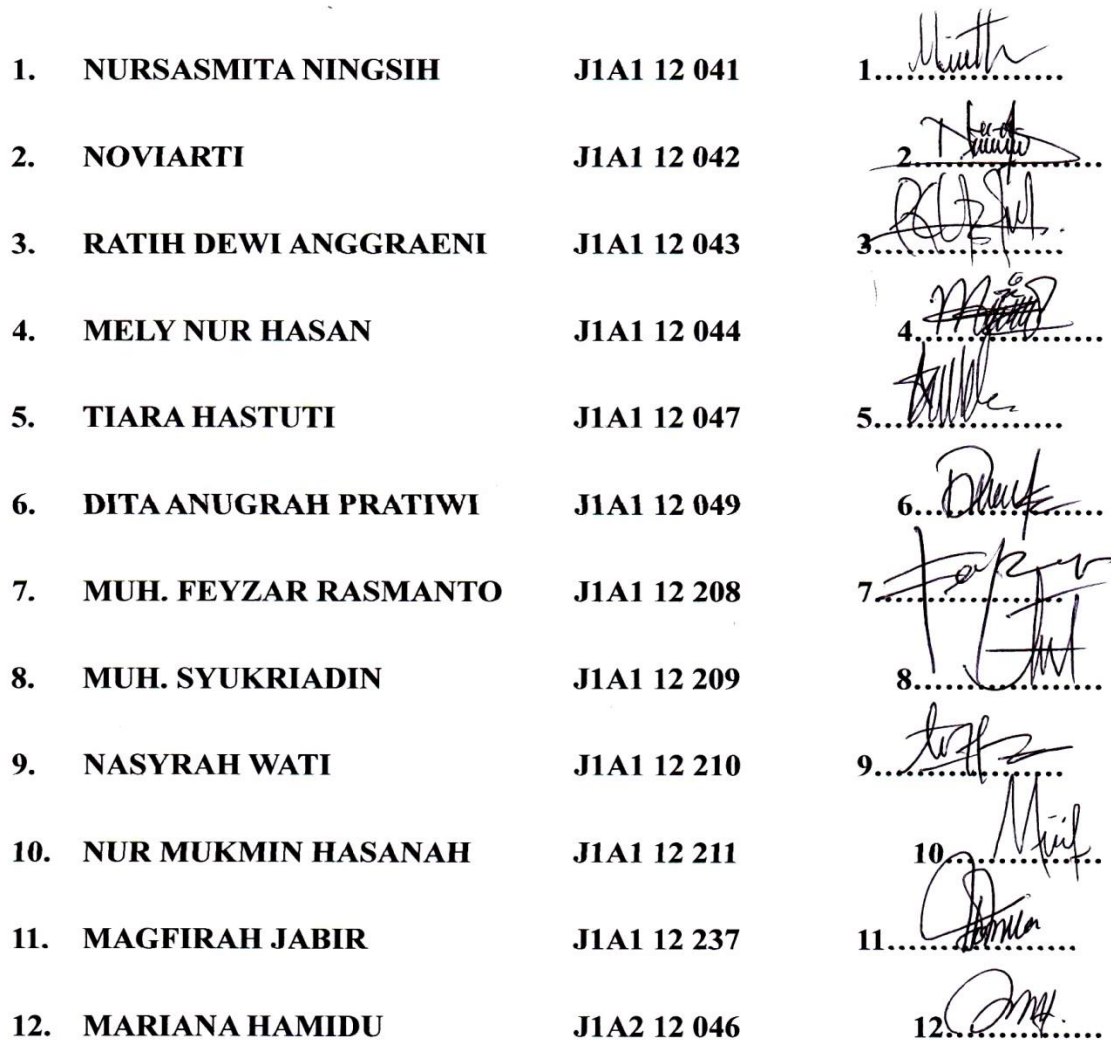 1. NURSASMITA NINGSIH J1A1 12 041 1..................
2. NOVIARTI J1A1 12 042 2..................
3. RATIH DEWI ANGGRAENI J1A1 12 043 3..................
4. MELY NUR HASAN J1A1 12 044 4..................
5. TIARA HASTUTI J1A1 12 047 5..................
6. DITA ANUGRAH PRATIWI J1A1 12 049 6..................
7. MUH. FEYZAR RASMANTO J1A1 12 208 7..................
8. MUH. SYUKRIADIN J1A1 12 209 8..................
9. NASYRAH WATI J1A1 12 210 9..................
10. NUR MUKMIN HASANAH J1A1 12 211 10..................
11. MAGFIRAH JABIR J1A1 12 237 11..................
12. MARIANA HAMIDU J1A2 12 046 12..................